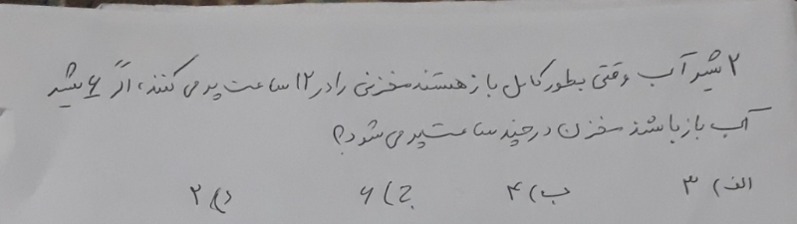 ۲ شیر آب وقتی بطور کامل باز هستند مخزنی را در ۱۲ ساعت پر می کنند، اگر ۶ شیر
آب باز باشند مخزن در چند ساعت پر می شود؟
الف) ۳ ب) ۴ ج) ۶ د) ۲